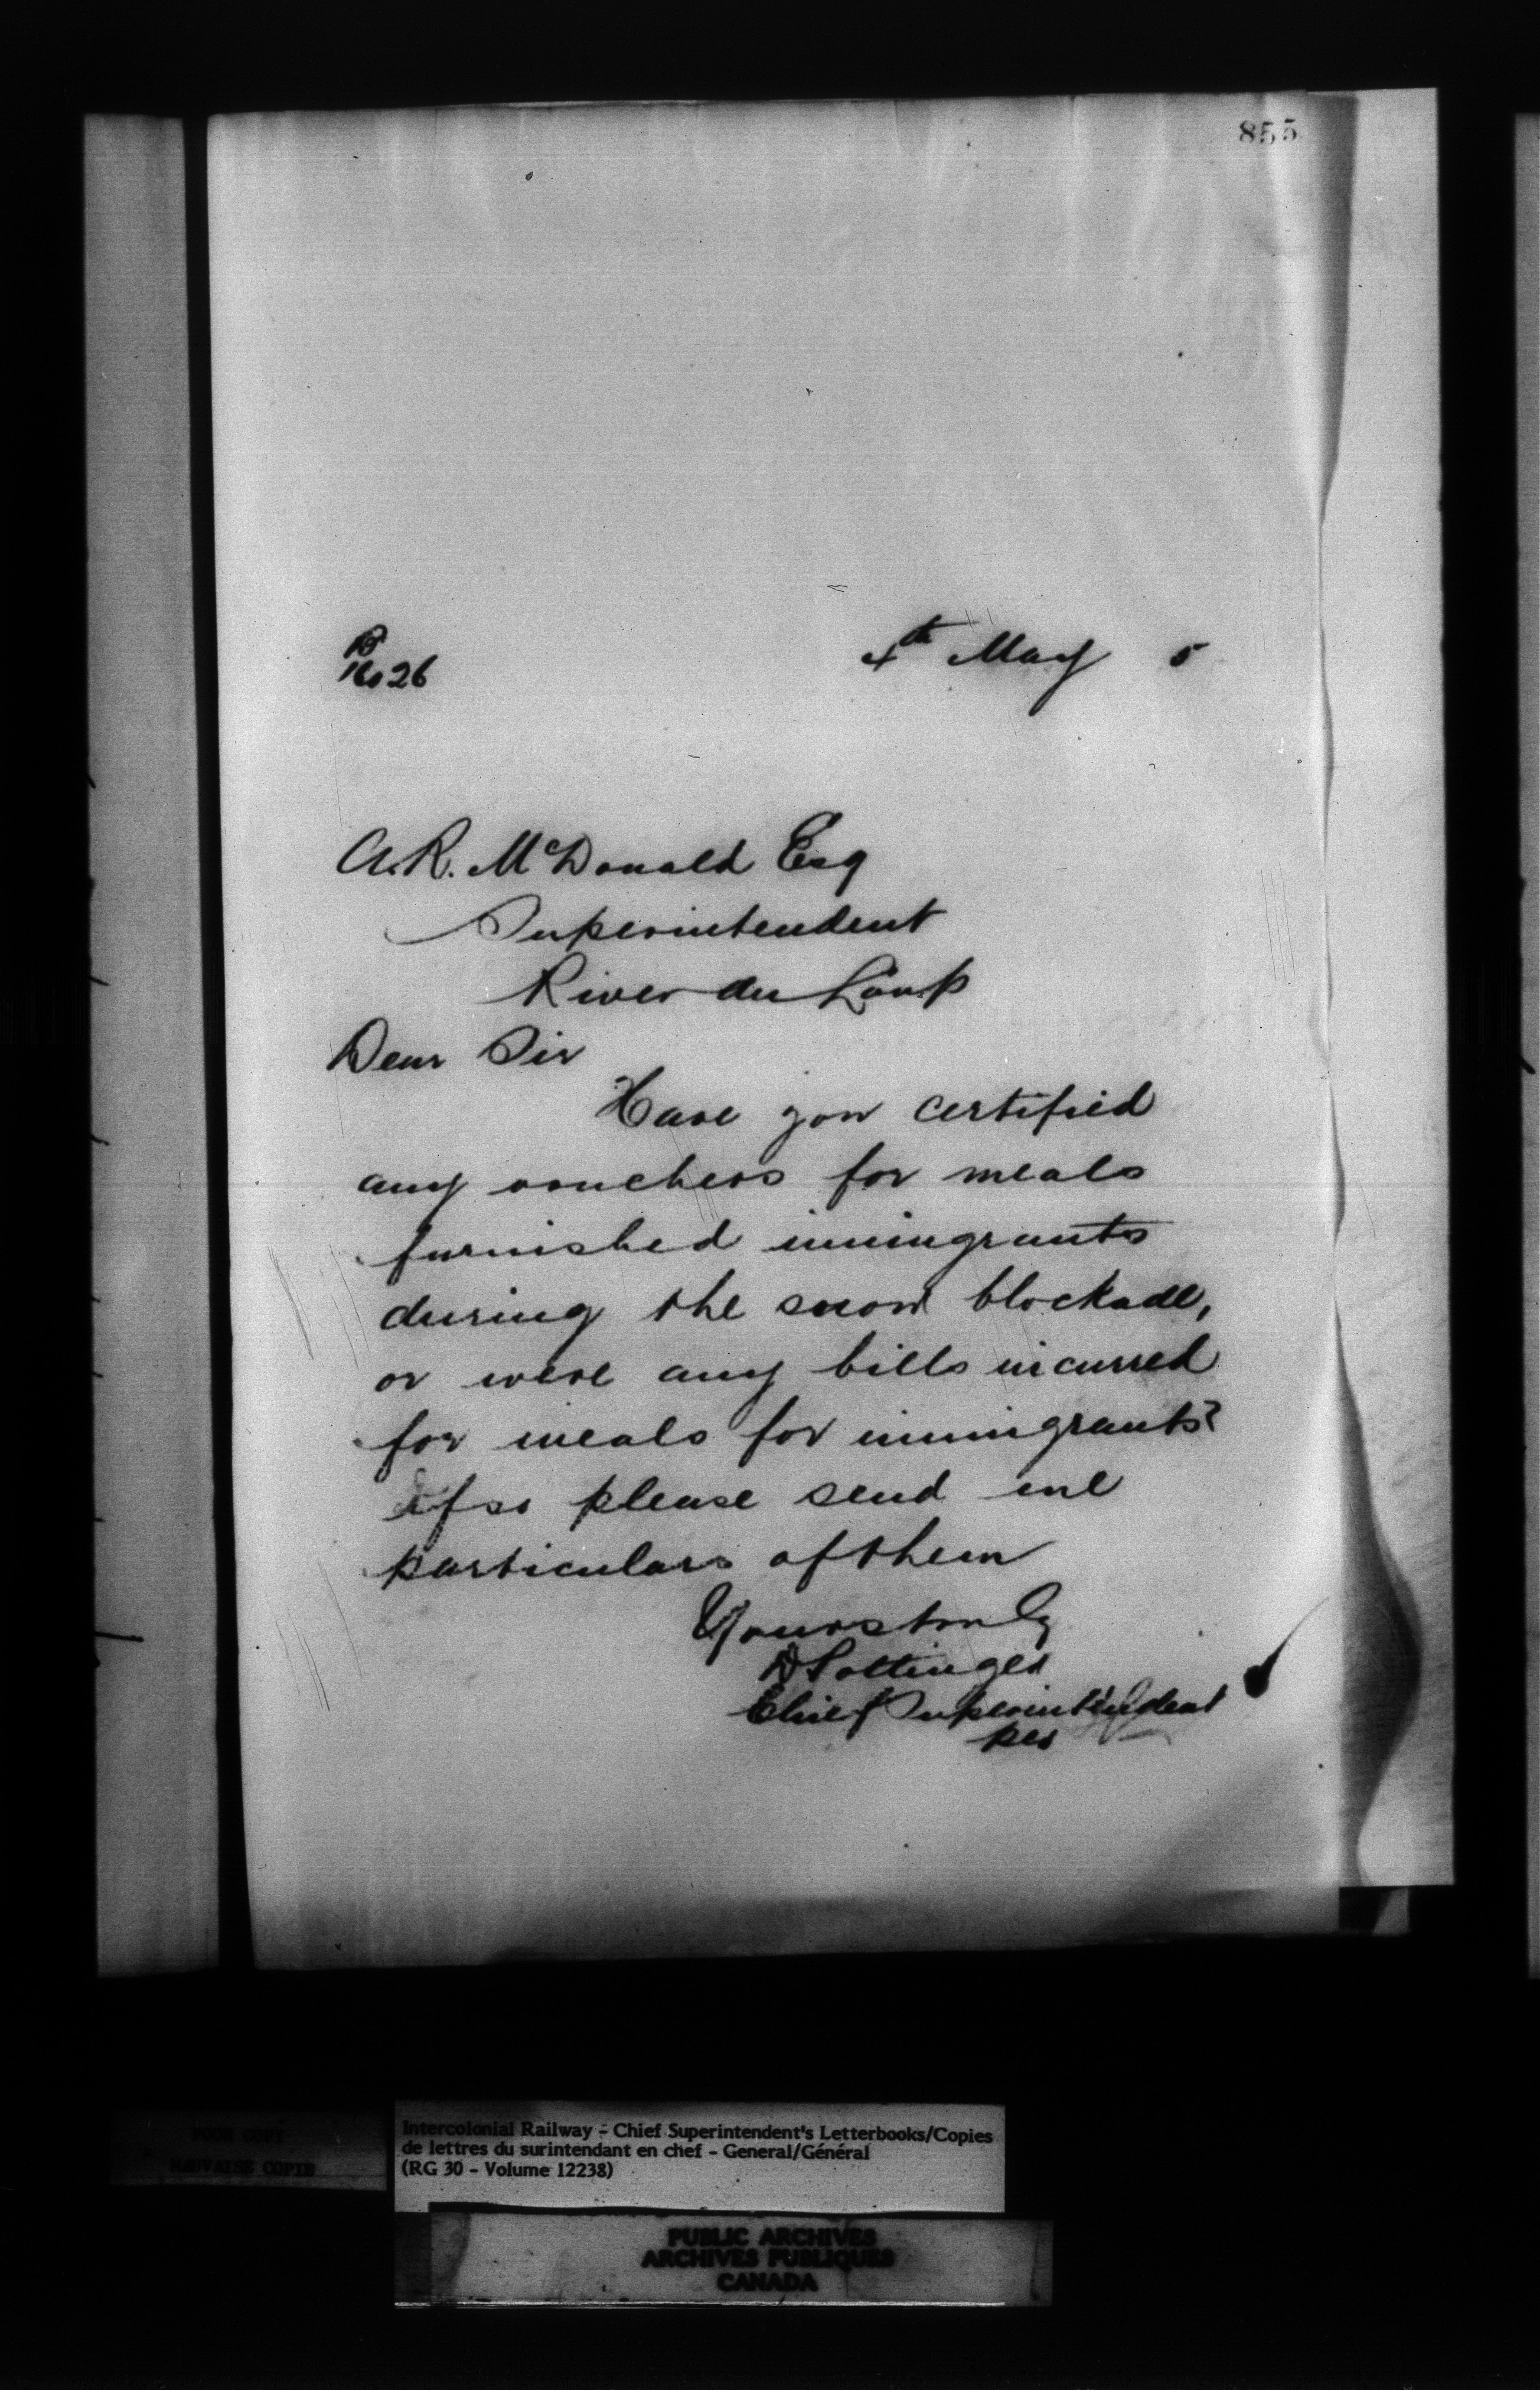 855
B
No 26
4th May 5
A.R. McDonald Esq
Superintendent
River du Loup
Dear Sir
Have you certified
any vouchers for meals
furnished immigrants
during the snow blockade,
or were any bills incurred
for meals for immigrants?
if so please send me
particulars of them
Yours truly
D Pottinger
Chief Superintendent
per
POOR COPY
MAUVAISE COPIE
Intercolonial Railway - Chief Superintendent's Letterbooks/Copies
de lettres du surintendant en chef - General/Général
(RG 30 - Volume 12238)
PUBLIC ARCHIVES
ARCHIVES PUBLIQUES
CANADA